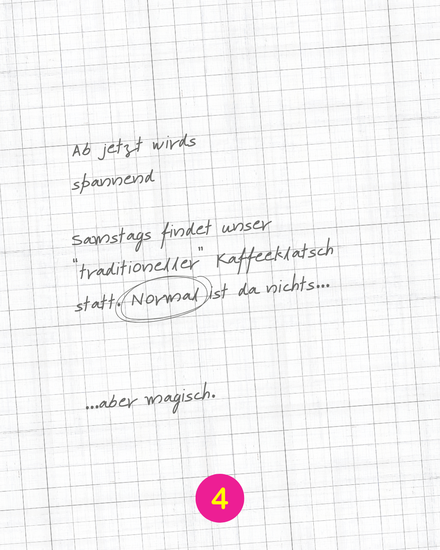 Ab jetzt wirds
spannend
Samstags findet unser
"traditioneller" Kaffeeklatsch
statt. Normal ist da nichts...
...aber magisch.
4